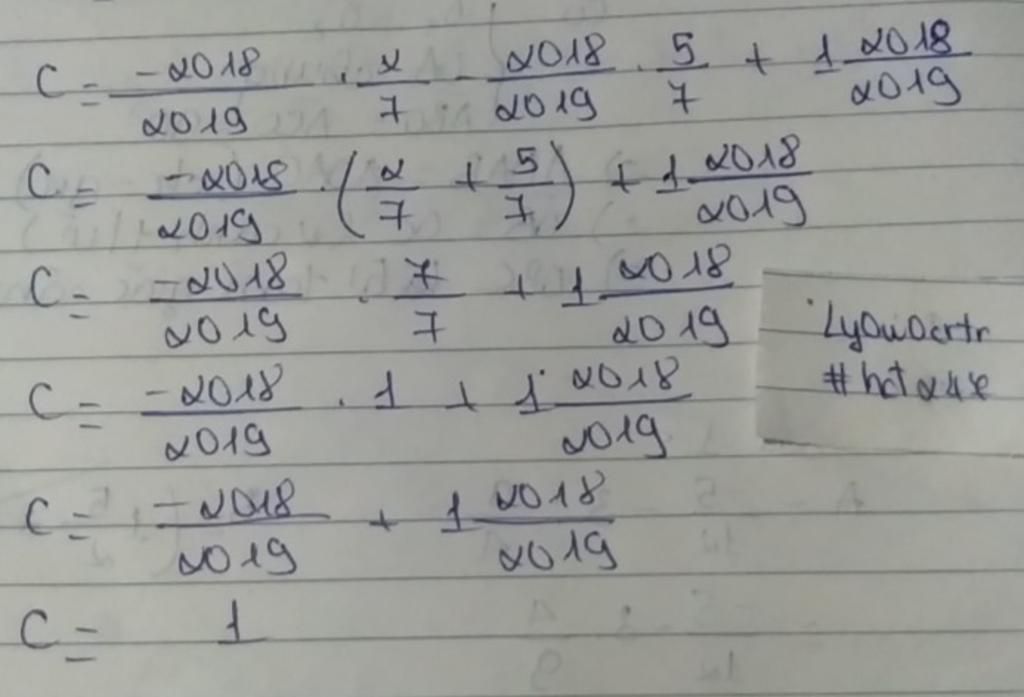 C = -2018/2019 . 2/7 - 2018/2019 . 5/7 + 1 2018/2019
C = -2018/2019 . (2/7 + 5/7) + 1 2018/2019
C = -2018/2019 . 7/7 + 1 2018/2019
C = -2018/2019 . 1 + 1 2018/2019
C = -2018/2019 + 1 2018/2019
C = 1